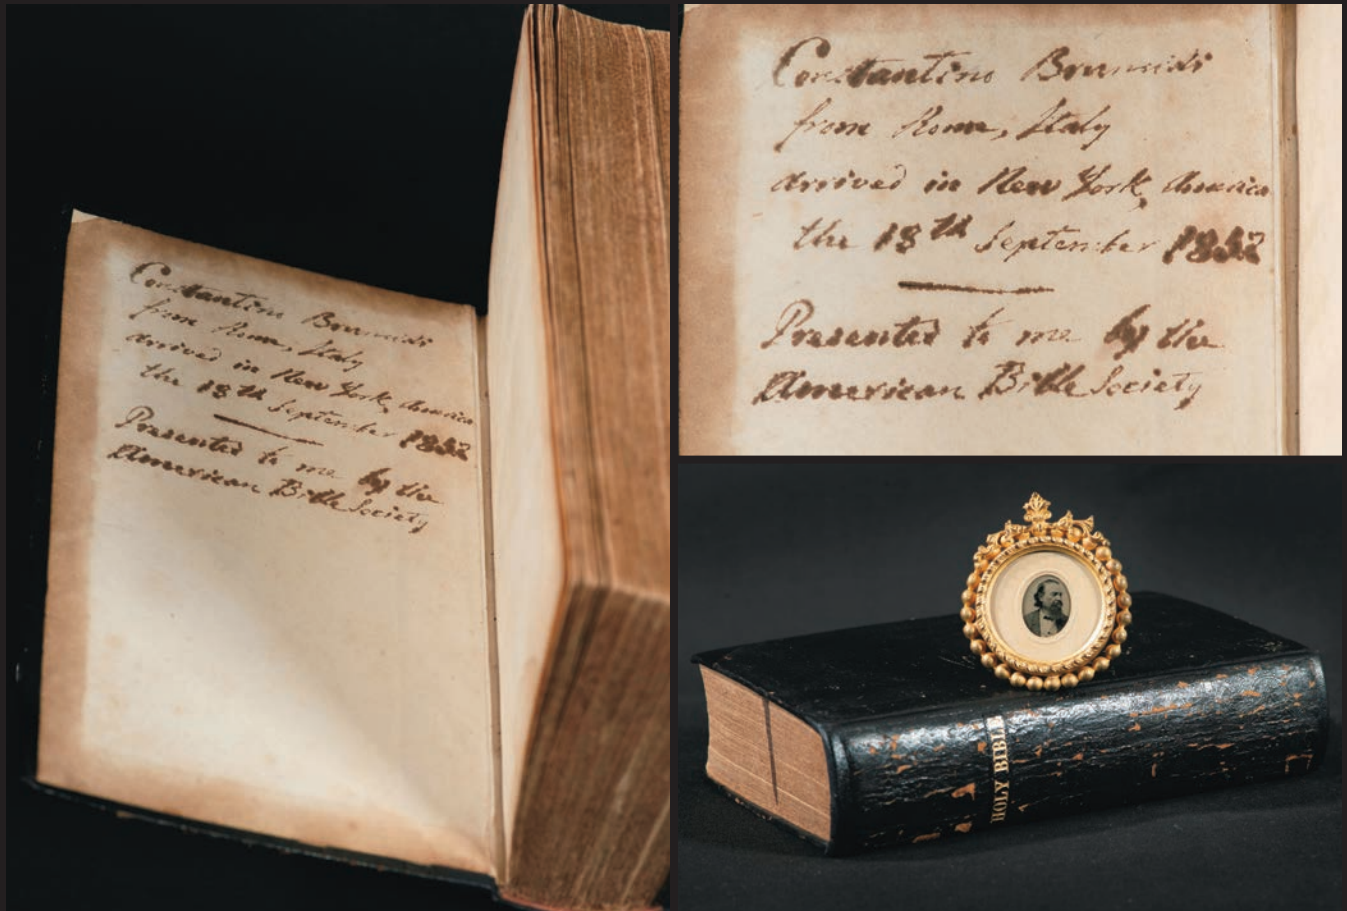 Constantino Brumidi
from Rome, Italy
arrived in New York, America
the 18th September 1852
Presented to me by the
American Bible Society
Constantino Brumidi
from Rome, Italy
arrived in New York, America
the 18th September 1852
Presented to me by the
American Bible Society
HOLY BIBLE